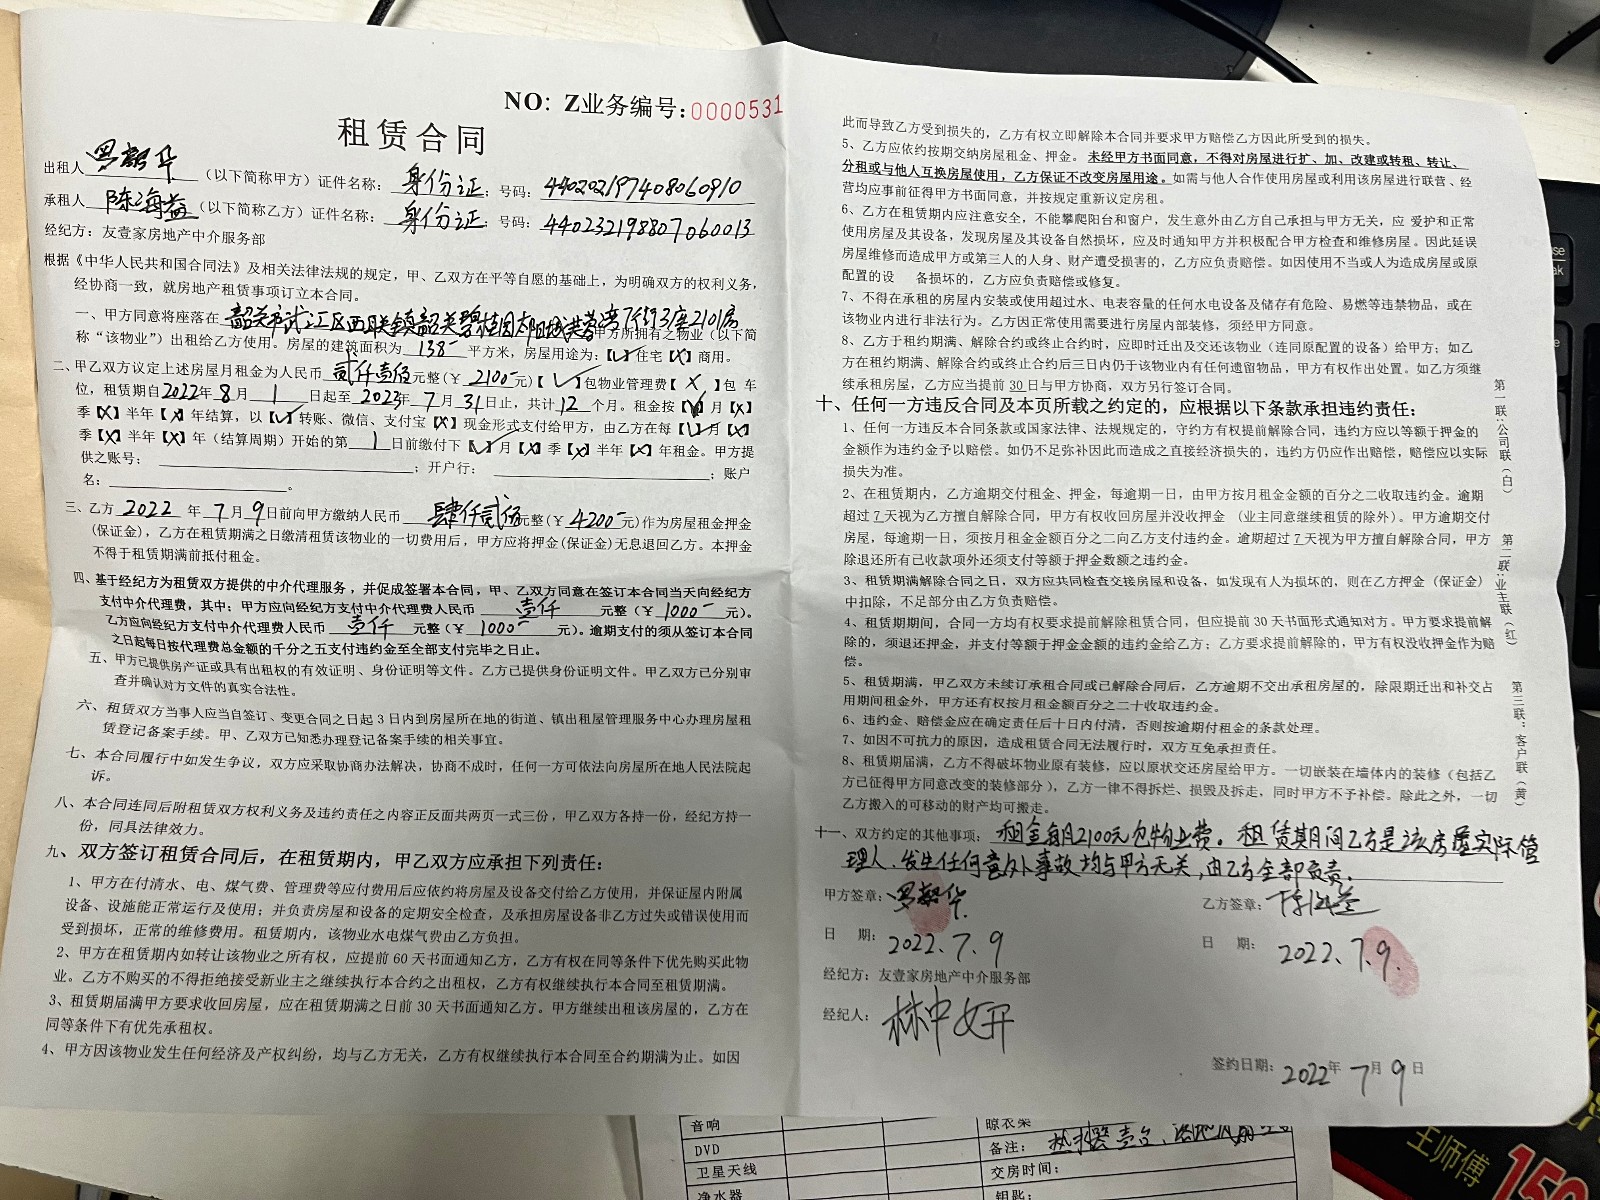 NO: Z业务编号:0000531
租赁合同
出租人罗韶华(以下简称甲方)证件名称:身份证;号码:440202197408060910
承租人陈海益(以下简称乙方)证件名称:身份证;号码:440232198807060013
经纪方:友壹家房地产中介服务部
根据《中华人民共和国合同法》及相关法律法规的规定,甲、乙双方在平等自愿的基础上,为明确双方的权利义务,
经协商一致,就房地产租赁事项订立本合同。
一、甲方同意将座落在韶关市武江区西联镇韶关碧桂园太阳城芙蓉湾7街3座2101房甲方所拥有之物业(以下简
称“该物业”)出租给乙方使用。房屋的建筑面积为138平方米,房屋用途为:【√】住宅【X】商用。
二、甲乙双方议定上述房屋月租金为人民币贰仟壹佰元整(¥2100-元)【√】包物业管理费【X】包 车
位,租赁期自2022年8月1日起至2023年7月31日止,共计12个月。租金按【√】月【X】
季【X】半年【X】年结算,以【√】转账、微信、支付宝【X】现金形式支付给甲方,由乙方在每【√】月【X】
季【X】半年【X】年(结算周期)开始的第1日前缴付下【√】月【X】季【X】半年【X】年租金。甲方提
供之账号: ;开户行: ;账户
名: 。
三、乙方2022年7月9日前向甲方缴纳人民币肆仟贰佰元整(¥4200-元)作为房屋租金押金
(保证金),乙方在租赁期满之日缴清租赁该物业的一切费用后,甲方应将押金(保证金)无息退回乙方。本押金
不得于租赁期满前抵付租金。
四、基于经纪方为租赁双方提供的中介代理服务,并促成签署本合同,甲、乙双方同意在签订本合同当天向经纪方
支付中介代理费,其中:甲方应向经纪方支付中介代理费人民币壹仟元整(¥1000-元)。
乙方应向经纪方支付中介代理费人民币壹仟元整(¥1000-元)。逾期支付的须从签订本合同
之日起每日按代理费总金额的千分之五支付违约金至全部支付完毕之日止。
五、甲方已提供房产证或具有出租权的有效证明、身份证明等文件。乙方已提供身份证明文件。甲乙双方已分别审
查并确认对方文件的真实合法性。
六、租赁双方当事人应当自签订、变更合同之日起3日内到房屋所在地的街道、镇出租屋管理服务中心办理房屋租
赁登记备案手续。甲、乙双方已知悉办理登记备案手续的相关事宜。
七、本合同履行中如发生争议,双方应采取协商办法解决,协商不成时,任何一方可依法向房屋所在地人民法院起
诉。
八、本合同连同后附租赁双方权利义务及违约责任之内容正反面共两页一式三份,甲乙双方各持一份,经纪方持一
份,同具法律效力。
九、双方签订租赁合同后,在租赁期内,甲乙双方应承担下列责任:
1、甲方在付清水、电、煤气费、管理费等应付费用后应依约将房屋及设备交付给乙方使用,并保证屋内附属
设备、设施能正常运行及使用;并负责房屋和设备的定期安全检查,及承担房屋设备非乙方过失或错误使用而
受到损坏,正常的维修费用。租赁期内,该物业水电煤气费由乙方负担。
2、甲方在租赁期内如转让该物业之所有权,应提前60天书面通知乙方,乙方有权在同等条件下优先购买此物
业。乙方不购买的不得拒绝接受新业主之继续执行本合约之出租权,乙方有权继续执行本合同至租赁期满。
3、租赁期届满甲方要求收回房屋,应在租赁期满之日前30天书面通知乙方。甲方继续出租该房屋的,乙方在
同等条件下有优先承租权。
4、甲方因该物业发生任何经济及产权纠纷,均与乙方无关,乙方有权继续执行本合同至合约期满为止。如因
此而导致乙方受到损失的,乙方有权立即解除本合同并要求甲方赔偿乙方因此所受到的损失。
5、乙方应依约按期交纳房屋租金、押金。未经甲方书面同意,不得对房屋进行扩、加、改建或转租、转让、
分租或与他人互换房屋使用,乙方保证不改变房屋用途。如需与他人合作使用房屋或利用该房屋进行联营、经
营均应事前征得甲方书面同意,并按规定重新议定房租。
6、乙方在租赁期内应注意安全,不能攀爬阳台和窗户,发生意外由乙方自己承担与甲方无关,应 爱护和正常
使用房屋及其设备,发现房屋及其设备自然损坏,应及时通知甲方并积极配合甲方检查和维修房屋。因此延误
房屋维修而造成甲方或第三人的人身、财产遭受损害的,乙方应负责赔偿。如因使用不当或人为造成房屋或原
配置的设 备损坏的,乙方应负责赔偿或修复。
7、不得在承租的房屋内安装或使用超过水、电表容量的任何水电设备及储存有危险、易燃等违禁物品,或在
该物业内进行非法行为。乙方因正常使用需要进行房屋内部装修,须经甲方同意。
8、乙方于租约期满、解除合约或终止合约时,应即时迁出及交还该物业(连同原配置的设备)给甲方;如乙
方在租约期满、解除合约或终止合约后三日内仍于该物业内有任何遗留物品,甲方有权作出处置。如乙方须继
续承租房屋,乙方应当提前30日与甲方协商,双方另行签订合同。
十、任何一方违反合同及本页所载之约定的,应根据以下条款承担违约责任:
1、任何一方违反本合同条款或国家法律、法规规定的,守约方有权提前解除合同,违约方应以等额于押金的
金额作为违约金予以赔偿。如仍不足弥补因此而造成之直接经济损失的,违约方仍应作出赔偿,赔偿应以实际
损失为准。
2、在租赁期内,乙方逾期交付租金、押金,每逾期一日,由甲方按月租金金额的百分之二收取违约金。逾期
超过7天视为乙方擅自解除合同,甲方有权收回房屋并没收押金 (业主同意继续租赁的除外)。甲方逾期交付
房屋,每逾期一日,须按月租金金额百分之二向乙方支付违约金。逾期超过7天视为甲方擅自解除合同,甲方
除退还所有已收款项外还须支付等额于押金数额之违约金。
3、租赁期满解除合同之日,双方应共同检查交接房屋和设备,如发现有人为损坏的,则在乙方押金 (保证金)
中扣除,不足部分由乙方负责赔偿。
4、租赁期期间,合同一方均有权要求提前解除租赁合同,但应提前30天书面形式通知对方。甲方要求提前解
除的,须退还押金,并支付等额于押金金额的违约金给乙方;乙方要求提前解除的,甲方有权没收押金作为赔
偿。
5、租赁期满,甲乙双方未续订承租合同或已解除合同后,乙方逾期不交出承租房屋的,除限期迁出和补交占
用期间租金外,甲方还有权按月租金额百分之二十收取违约金。
6、违约金、赔偿金应在确定责任后十日内付清,否则按逾期付租金的条款处理。
7、如因不可抗力的原因,造成租赁合同无法履行时,双方互免承担责任。
8、租赁期届满,乙方不得破坏物业原有装修,应以原状交还房屋给甲方。一切嵌装在墙体内的装修(包括乙
方已征得甲方同意改变的装修部分),乙方一律不得拆烂、损毁及拆走,同时甲方不予补偿。除此之外,一切
乙方搬入的可移动的财产均可搬走。
十一、双方约定的其他事项:租金每月2100元包物业费。租赁期间乙方是该房屋实际管
理人,发生任何意外事故均与甲方无关,由乙方全部负责。
甲方签章:罗韶华
乙方签章:陈海益
日 期:2022.7.9
日 期:2022.7.9.
经纪方:友壹家房地产中介服务部
经纪人:林中妍
签约日期:2022年7月9日
第一联:公司联(白)
第二联:业主联(红)
第三联:客户联(黄)
音响
DVD
卫星天线
净水器
晾衣架
备注:热水器壹台、
交房时间:
钥匙:
王师傅